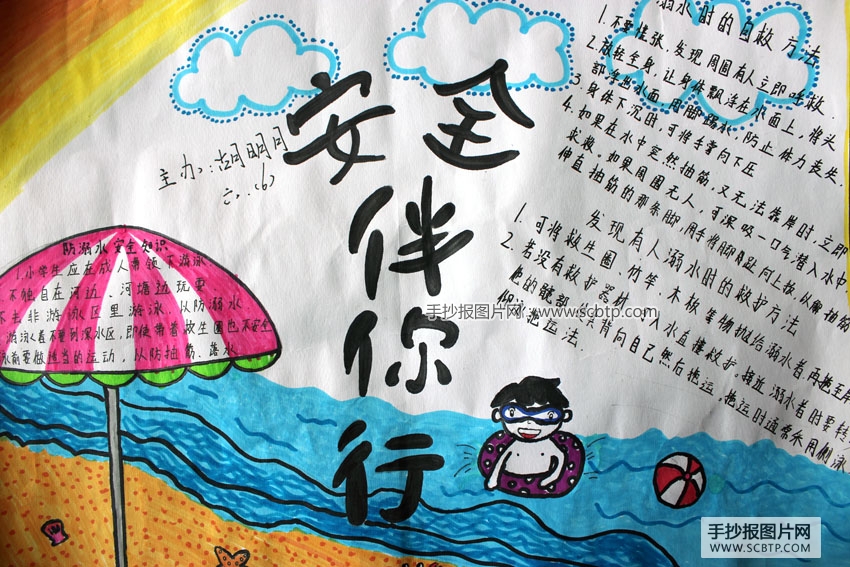 安全
伴
你
行
主办：胡明月
六.(6)
防溺水安全知识
1.小学生应在成人带领下游泳
不独自在河边、河塘边玩耍
不去非游泳区里游泳，以防溺水
游泳者不要到深水区，即使带着救生圈也不安全
泳前要做适当的运动，以防抽筋、落水
溺水时的自救方法
1.不要惊张，发现周围有人立即呼救.
2.放松全身，让身体飘浮在水面上，将头
部浮出水面，用脚踢水，防止体力丧失，
3.身体下沉时，可将手掌向下压
4.如果在水中突然抽筋，又无法靠岸时，立即
求救。如果周围无人，可深吸一口气潜入水中，
伸直抽筋的那条脚，用手将脚趾向上扳，以解抽筋
发现有人溺水时的救护方法
1.可将救生圈、竹竿、木板等物抛给溺水者，再拖至岸
2.若没有救护器材，可入水直接救护。接近溺水者时要转
他的髋部，背向自己然后拖运。拖运时通常采用侧泳
拖运法.
手抄报图片网：www.scbtp.com
手抄报图片网
WWW.SCBTP.COM